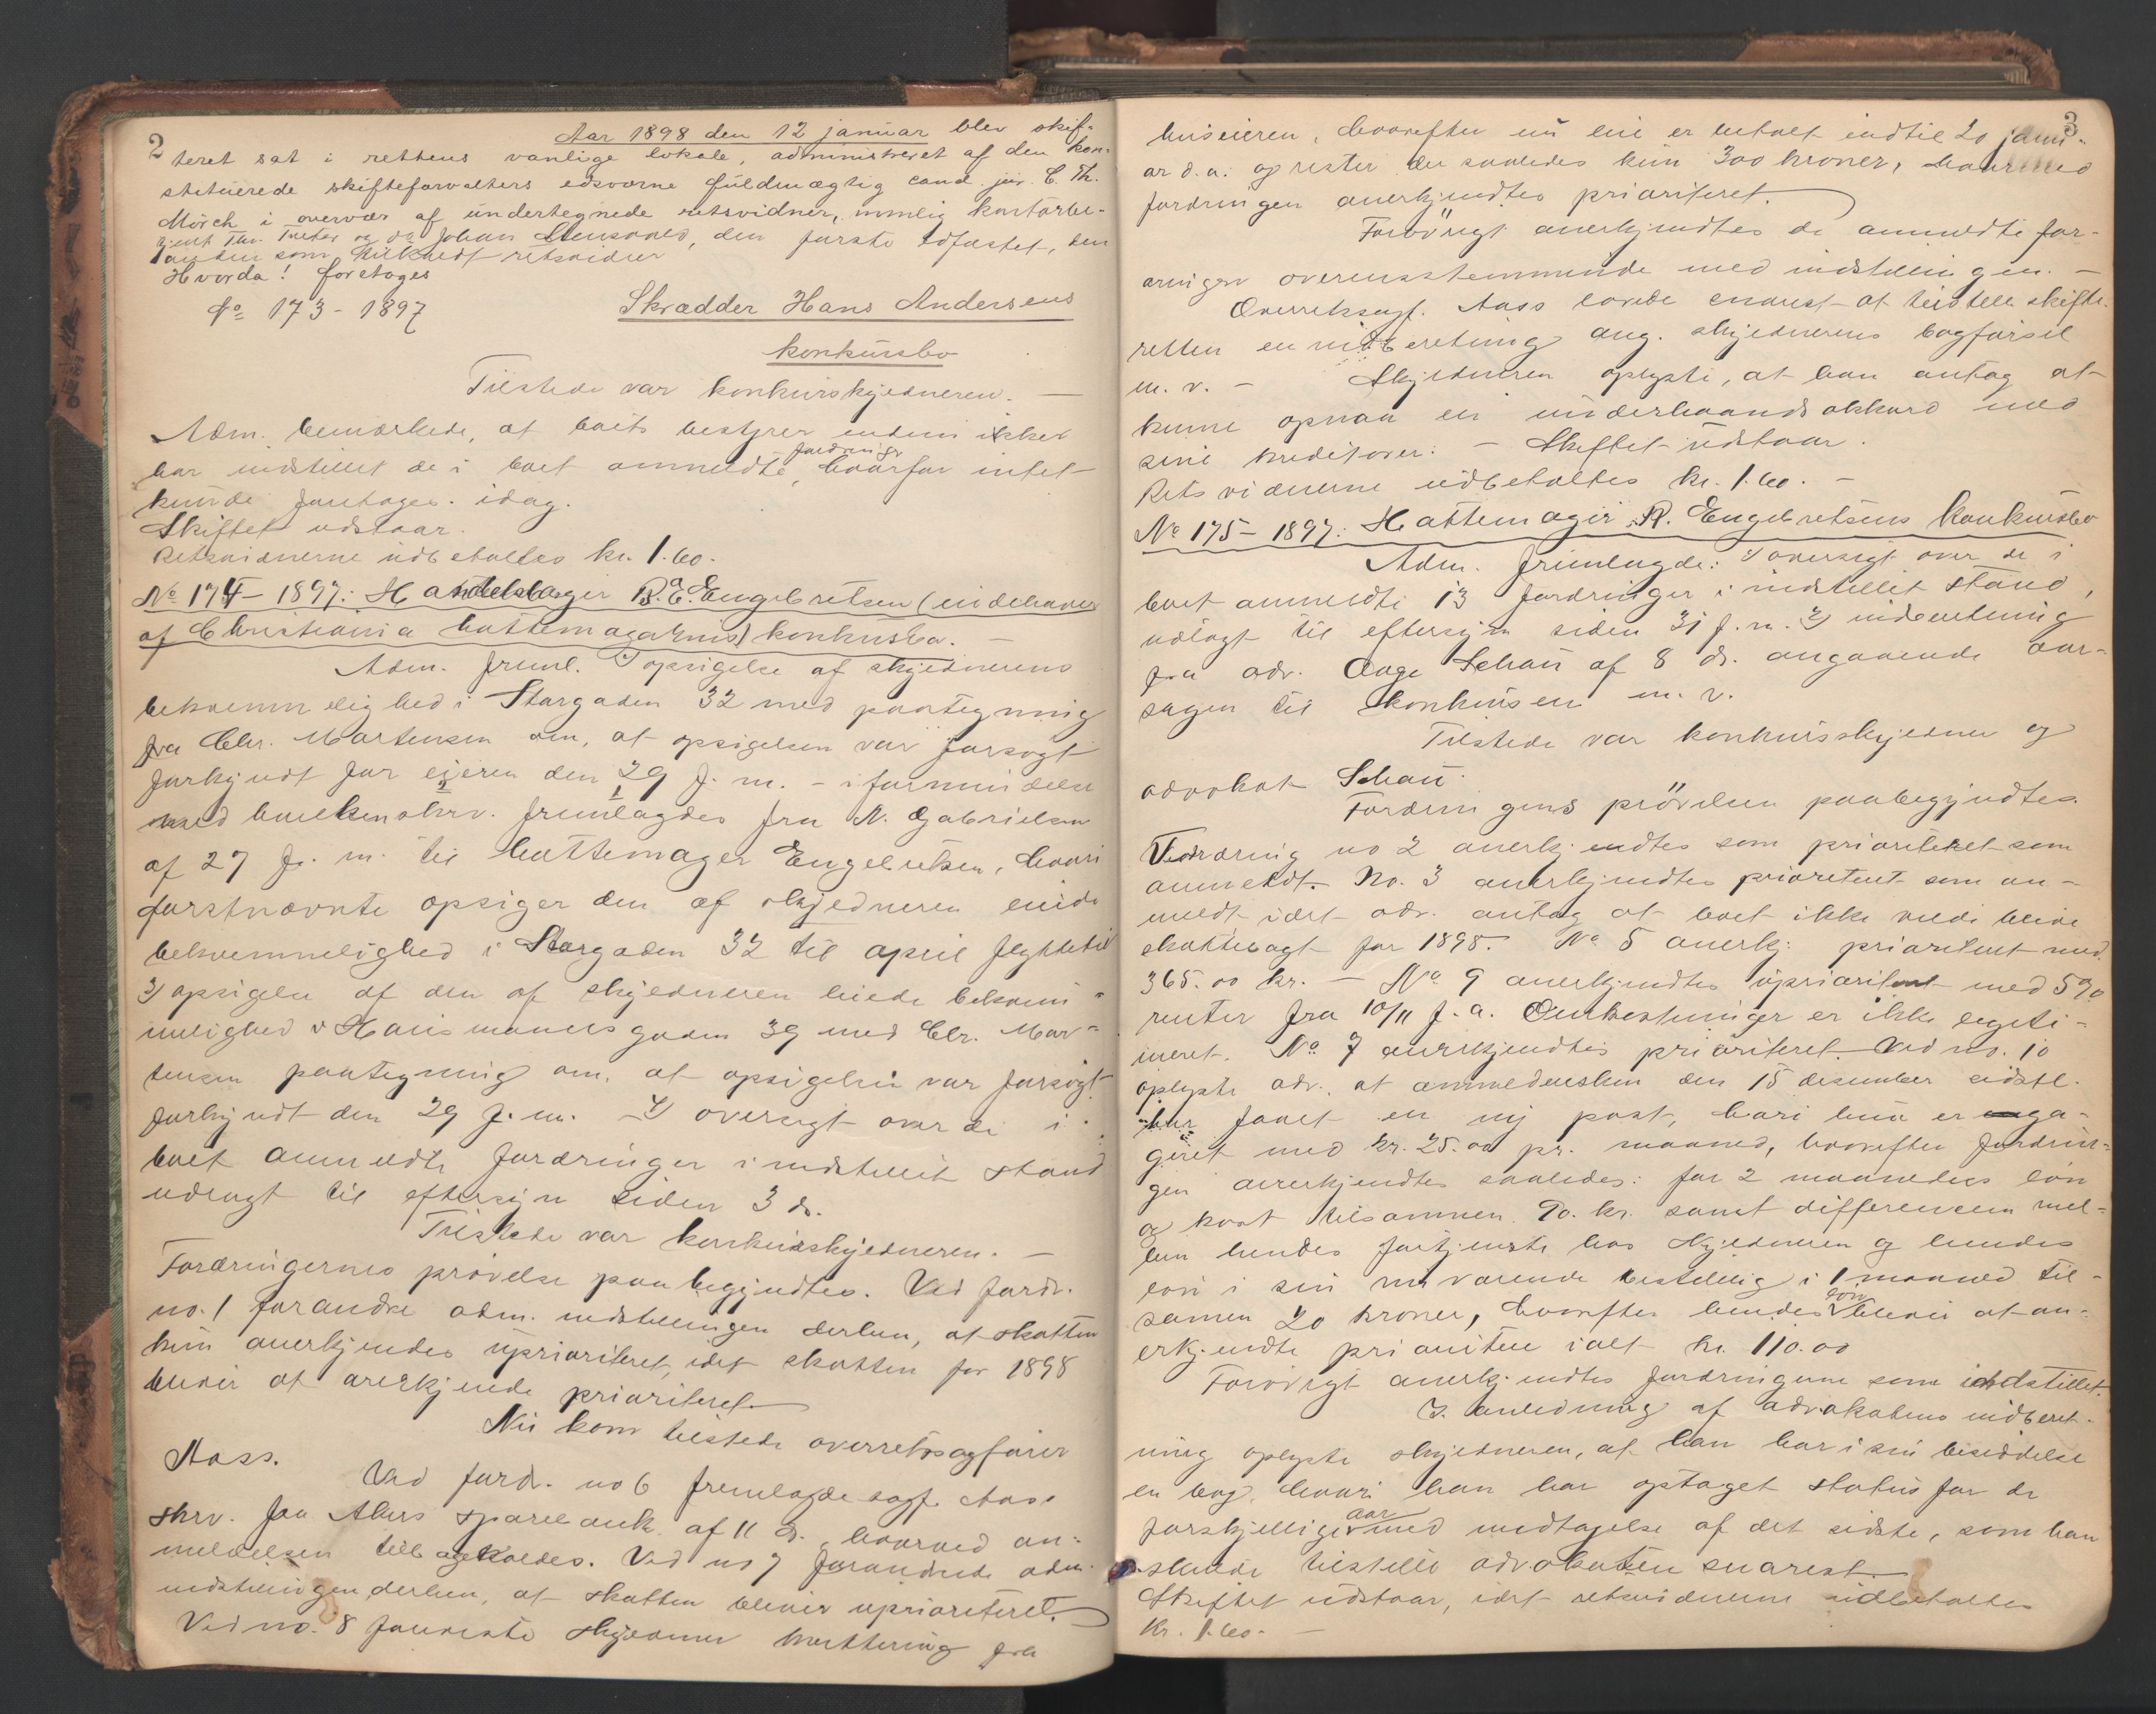 2
Aar 1898 den 12 januar blev skif-
teret sat i rettens vanlige lokale, administreret af den kon-
stituerede skifteforvalters edsvorne fuldmægtig cand. jur. C. Th.
Mörch i overvær af undertegnede retsvidner, nemlig kontorbe-
tjent Johan den förste edfæstet, den
anden som tilkaldt retsvidne
Hvorda! foretoges
No 173 - 1897 Skrædder Hans Andersens
konkursbo
Tilstede var konkursskyldneren. —
Adm. bemærkede, at boets bestyrer endnu ikke
har indstillet de i boet anmeldte fordringer, hvorfor intet
kunde foretages idag.
Skiftet udstaar.
Retsvidnerne udbetaltes kr. 1.60.
No 174 - 1897: R. E. Engebretsen (indehaver
af Christiania hattemagasins) konkursbo. —
Adm. freml. 1) opsigelse af skyldnerens
bekvemmelighed i Storgaden 32 med paategning
fra Chr. Martensen om, at opsigelsen var forsøgt
forkyndt for eieren den 29 f. m. - i forbindelse
med hvilken skrv. fremlagdes fra N. Gabrielsen
af 27 f. m. til hattemager Engebretsen, hvori
førstnævnte opsiger den af skyldneren leiede
bekvemmelighed i Storgaden 32 til april flyttetid
3) opsigelse af den af skyldneren leiede bekvem-
melighed i Hausmannsgaden 39 med Chr. Mar-
tensens paategning om, at opsigelsen var forsøgt
forkyndt den 29 f. m. 4) oversigt over de i
boet anmeldte fordringer i indstillet stand
udlagt til eftersyn siden 3 ds.
Tilstede var konkursskyldneren. —
Fordringernes prövelse paabegyndtes. Ved fordr.
no. 1 forandre adm. indstillingen derhen, at skatten
kun anerkjendes uprioriteret, idet skatten for 1898
bliver at anerkjende prioriteret.
Nu kom tilstede overretssagfører
Aass.
Ved fordr. no 6 fremlagde sagf. Aass
skrv. fra Akers sparebank af 11 ds. hvorved an-
meldelsen tilbagekaldes. Ved no 7 forandrede adm.
indstillingen derhen, at skatten bliver uprioriteret.
Ved no. 8 foreviste skyldner kvittering fra
3
huseieren, hvorefter nu leie er betalt indtil 20 janu-
ar d. a. og rester der saaledes kun 300 kroner, hvormed
fordringen anerkjendtes prioriteret.
Forövrigt anerkjendtes de anmeldte for-
dringer overensstemmende med indstillingen. —
Overretssagf. Aass lovede snarest at tilstille skifte-
retten en indberetning ang. skyldnerens bogførsel
m. v. — Skyldneren oplyste, at han antog at
kunne opnaa en underhaandsakkord med
sine kreditorer. — Skiftet udstaar.
Retsvidnerne udbetaltes kr. 1.60. —
No 175 - 1897. Hattemager R. Engebretsens konkursbo
Adm. fremlagde: 1) oversigt over de i
boet anmeldte 13 fordringer i indstillet stand,
udlagt til eftersyn siden 31 f. m. 2) indberetning
fra adv. Aage Schau af 8 ds. angaaende aar-
sagen til konkursen m. v.
Tilstede var konkursskyldner og
advokat Schau.
Fordringens prövelse paabegyndtes.
Fordring no 2 anerkjendtes som prioriteret som
anmeldt. No. 3 anerkjendtes prioriteret som an-
meldt idet adv. antog at boet ikke vilde blive
skattelagt for 1898. No 5 anerkj. prioriteret med
365.00 kr. — No 9 anerkjendtes uprioriteret med 5%
renter fra 10/11 f. a. Omkostninger er ikke legiti-
meret. No 7 anerkjendtes prioriteret. Ved no. 10
oplyste adv. at anmeldelsen den 15 desember sidstl.
har faaet en ny post, hvori hun er enga-
geret med kr. 25.00 pr. maaned, hvorefter fordrin-
gen anerkjendtes saaledes: for 2 maaneders løn
og kost tilsammen 90. kr. samt differencen mel-
lem hendes fortjeneste hos skyldneren og hendes
løn i sin nuværende bestilling i 1 maaned til-
samen 20 kroner, hvorefter hendes løn bliver at an-
erkjendte prioritere ialt kr. 110.00
Forövrigt anerkjendtes fordringerne som indstillet.
I anledning af advokatens indberet-
ning oplyste skyldneren, at han har i sin besiddelse
en bog, hvori han har optaget status for de
forskjellige aar med undtagelse af det sidste, som han
skulde tilstille advokaten snarest.
Skiftet udstaar, idet retsvidnerne udbetaltes
kr. 1.60. —